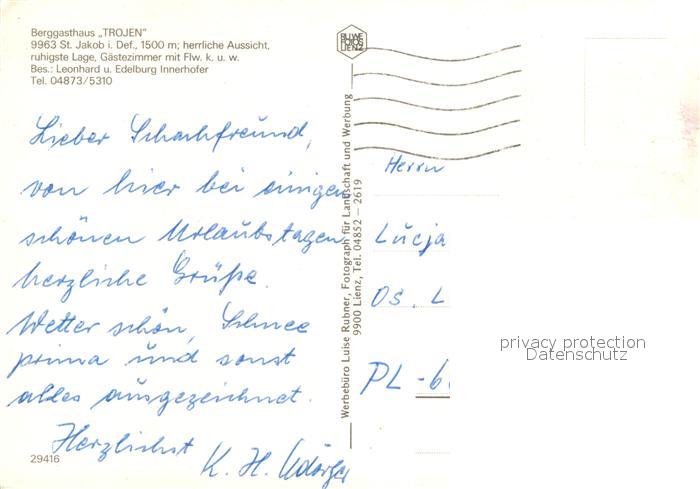 Berggasthaus „TROJEN"
9963 St. Jakob i. Def., 1500 m; herrliche Aussicht,
ruhigste Lage, Gästezimmer mit Flw. k. u. w.
Bes.: Leonhard u. Edelburg Innerhofer
Tel. 04873/5310
Lieber Schachfreund,
von hier bei einigen
schönen Urlaubstagen
herzliche Grüße.
Wetter schön, Schnee
prima und sonst
alles ausgezeichnet.
Herzlichst
K. H.
29416
Werbebüro Luise Rubner, Fotograph für Landschaft und Werbung
9900 Lienz, Tel. 04852 – 2619
RUWE
FOTOS
LIENZ
Herrn
Lucja
Os. L
PL-6
privacy protection
Datenschutz